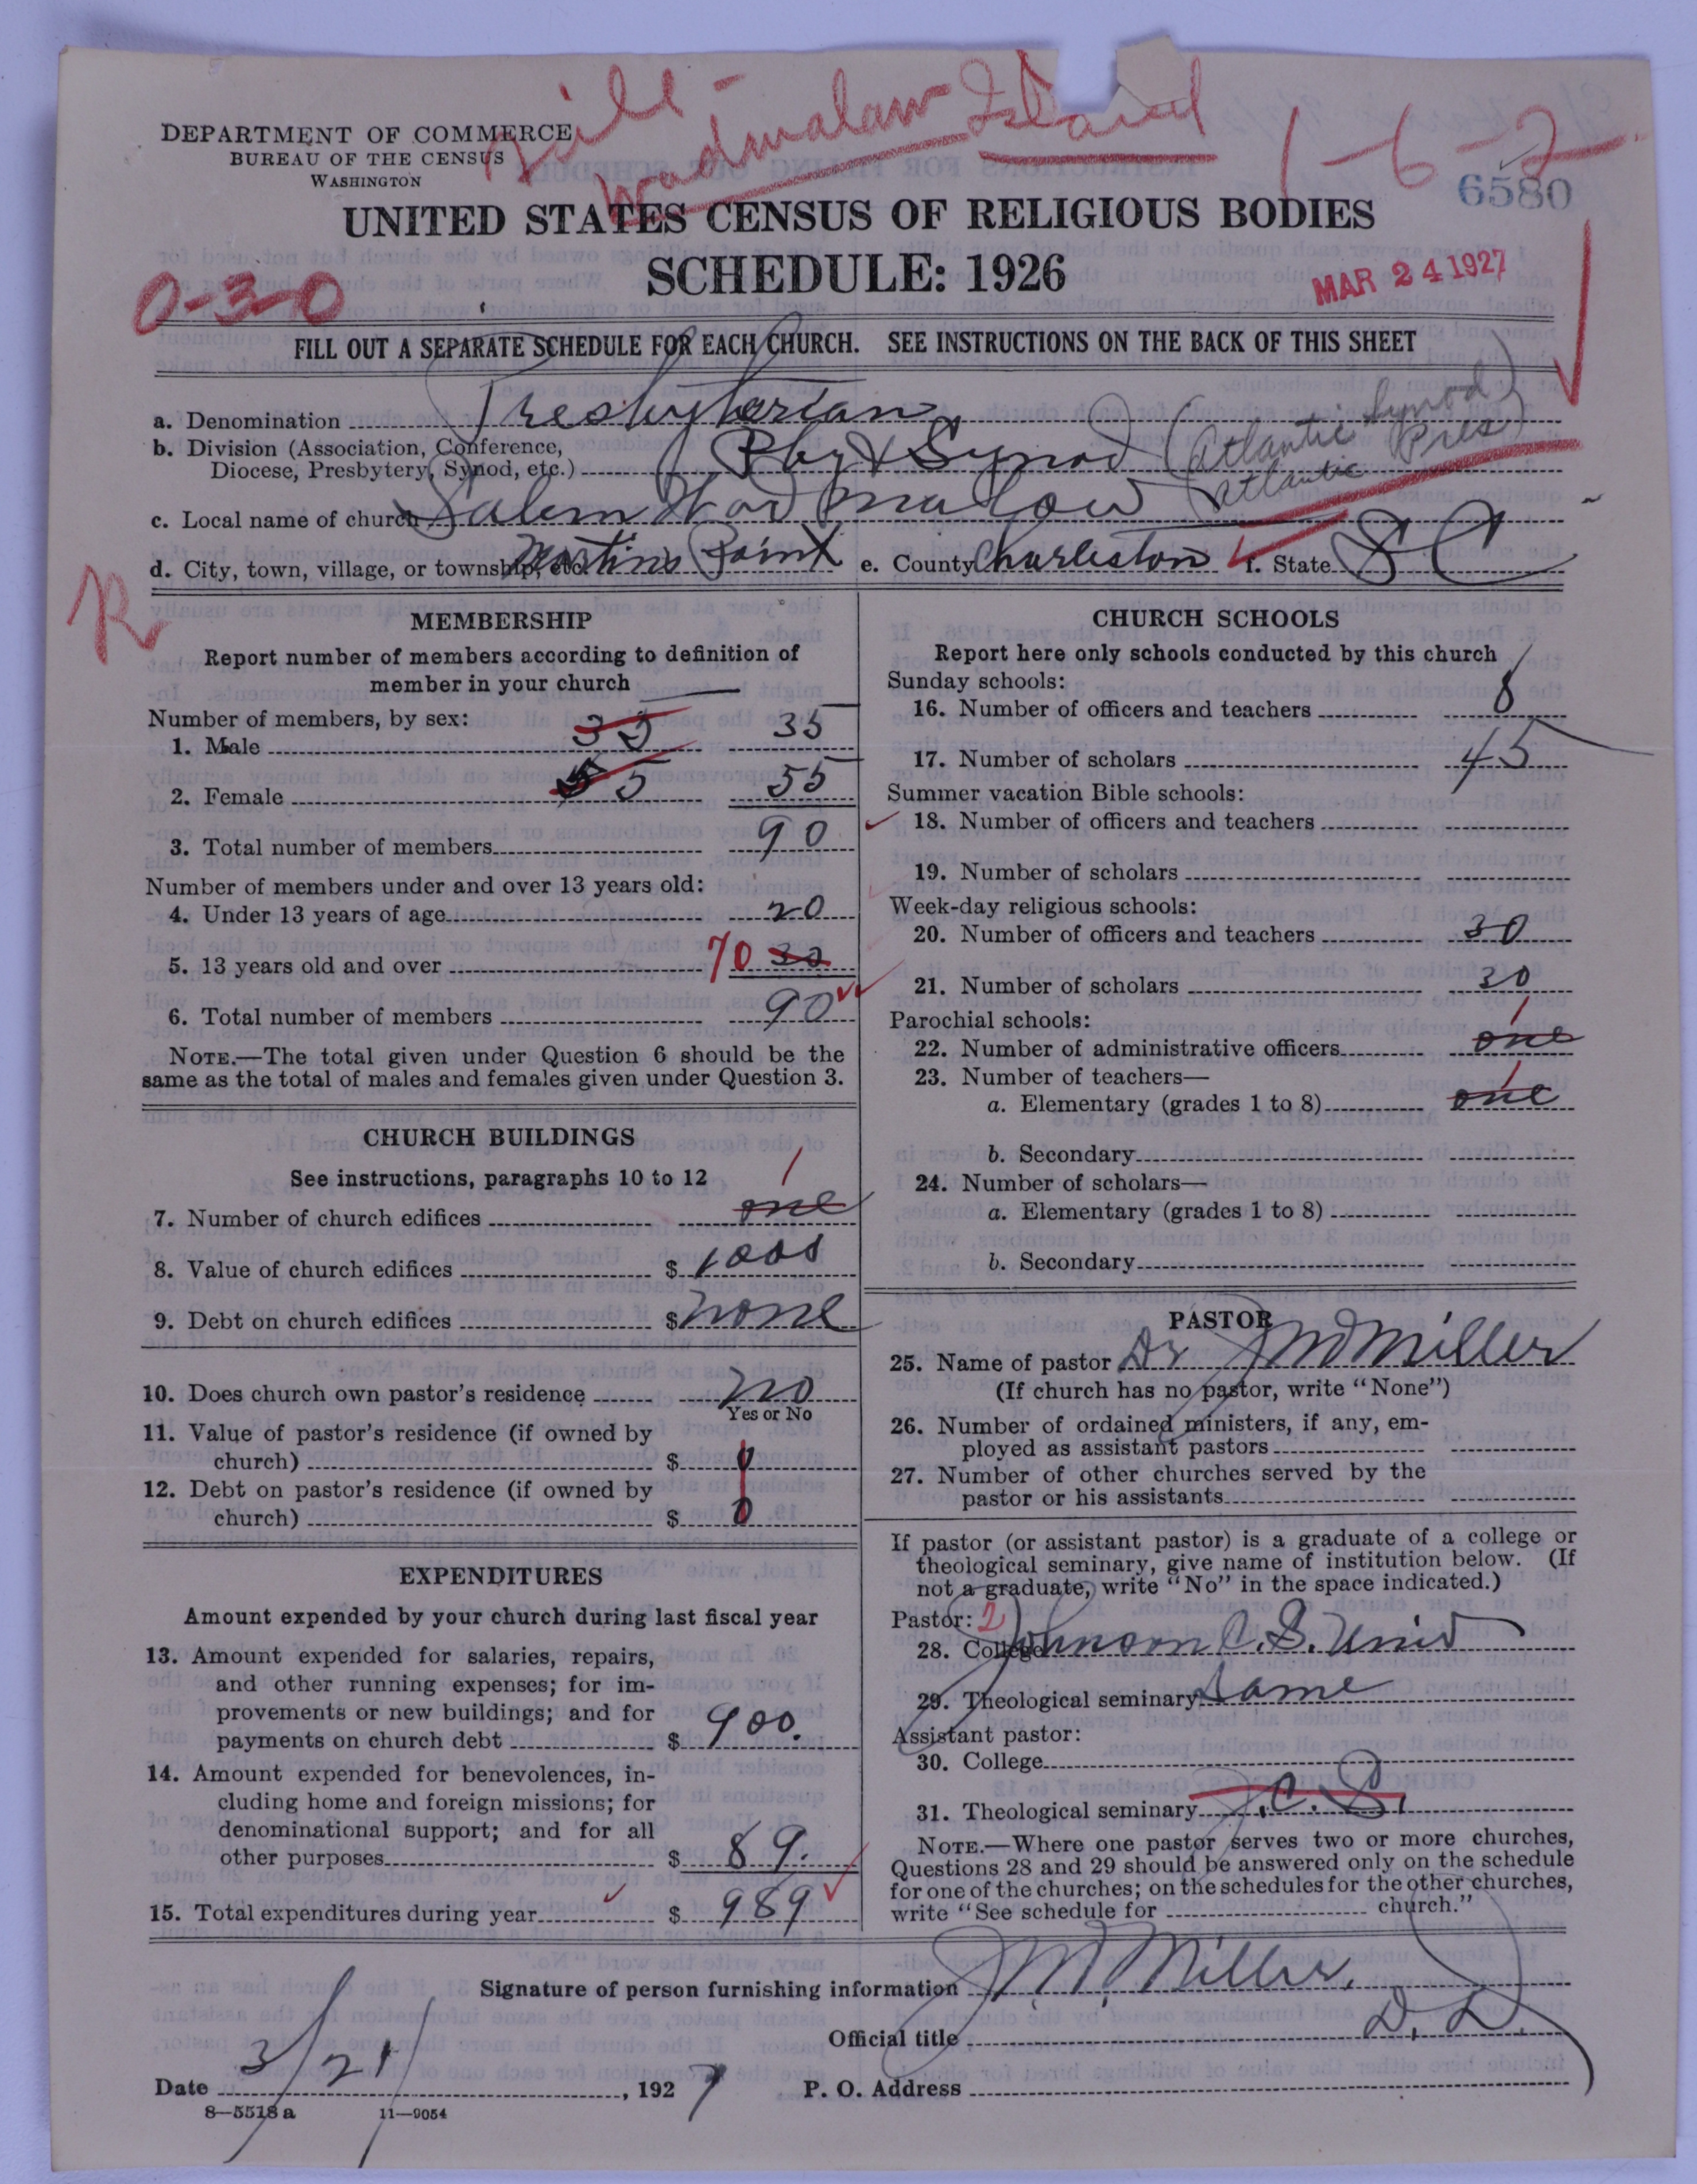 Wadmalaw Island
1-6-2
DEPARTMENT OF COMMERCE
BUREAU OF THE CENSUS
WASHINGTON
6580
UNITED STATES CENSUS OF RELIGIOUS BODIES
SCHEDULE: 1926
MAR 24 1927
0-3-0
FILL OUT A SEPARATE SCHEDULE FOR EACH CHURCH. SEE INSTRUCTIONS ON THE BACK OF THIS SHEET
a. Denomination Presbyterian
b. Division (Association, Conference,
Diocese, Presbytery, Synod, etc.) Pby & Synod (Atlantic Synod
Atlantic Pres)
c. Local name of church Salem Wadmalow
d. City, town, village, or township, etc. Martins Point e. County Charleston f. State S C
R
MEMBERSHIP
Report number of members according to definition of
member in your church
Number of members, by sex:
1. Male 35 35
2. Female 55 55
3. Total number of members 90
Number of members under and over 13 years old:
4. Under 13 years of age 20
5. 13 years old and over 70 30
6. Total number of members 90
NOTE.—The total given under Question 6 should be the
same as the total of males and females given under Question 3.
CHURCH BUILDINGS
See instructions, paragraphs 10 to 12
1
7. Number of church edifices one
8. Value of church edifices $ 1000
9. Debt on church edifices $ none
10. Does church own pastor's residence no
Yes or No
11. Value of pastor's residence (if owned by
church) $ 0
12. Debt on pastor's residence (if owned by
church) $ 0
EXPENDITURES
Amount expended by your church during last fiscal year
13. Amount expended for salaries, repairs,
and other running expenses; for im-
provements or new buildings; and for
payments on church debt $ 900.
14. Amount expended for benevolences, in-
cluding home and foreign missions; for
denominational support; and for all
other purposes $ 89.
15. Total expenditures during year $ 989
CHURCH SCHOOLS
Report here only schools conducted by this church
Sunday schools:
16. Number of officers and teachers 8
17. Number of scholars 45
Summer vacation Bible schools:
18. Number of officers and teachers
19. Number of scholars
Week-day religious schools:
20. Number of officers and teachers 30
21. Number of scholars 30
Parochial schools:
1
22. Number of administrative officers one
23. Number of teachers—
1
a. Elementary (grades 1 to 8) one
b. Secondary
24. Number of scholars—
a. Elementary (grades 1 to 8)
b. Secondary
PASTOR
25. Name of pastor Dr J M Miller
(If church has no pastor, write "None")
26. Number of ordained ministers, if any, em-
ployed as assistant pastors
27. Number of other churches served by the
pastor or his assistants
If pastor (or assistant pastor) is a graduate of a college or
theological seminary, give name of institution below. (If
not a graduate, write "No" in the space indicated.)
Pastor: 2
28. College Johnson C. S. Univ
29. Theological seminary Same
Assistant pastor:
30. College
31. Theological seminary J. C. S.
NOTE.—Where one pastor serves two or more churches,
Questions 28 and 29 should be answered only on the schedule
for one of the churches; on the schedules for the other churches,
write "See schedule for church."
Signature of person furnishing information J. M. Miller.
Official title D. D.
Date 3/21/, 1927 P. O. Address
8—5518 a 11—9054